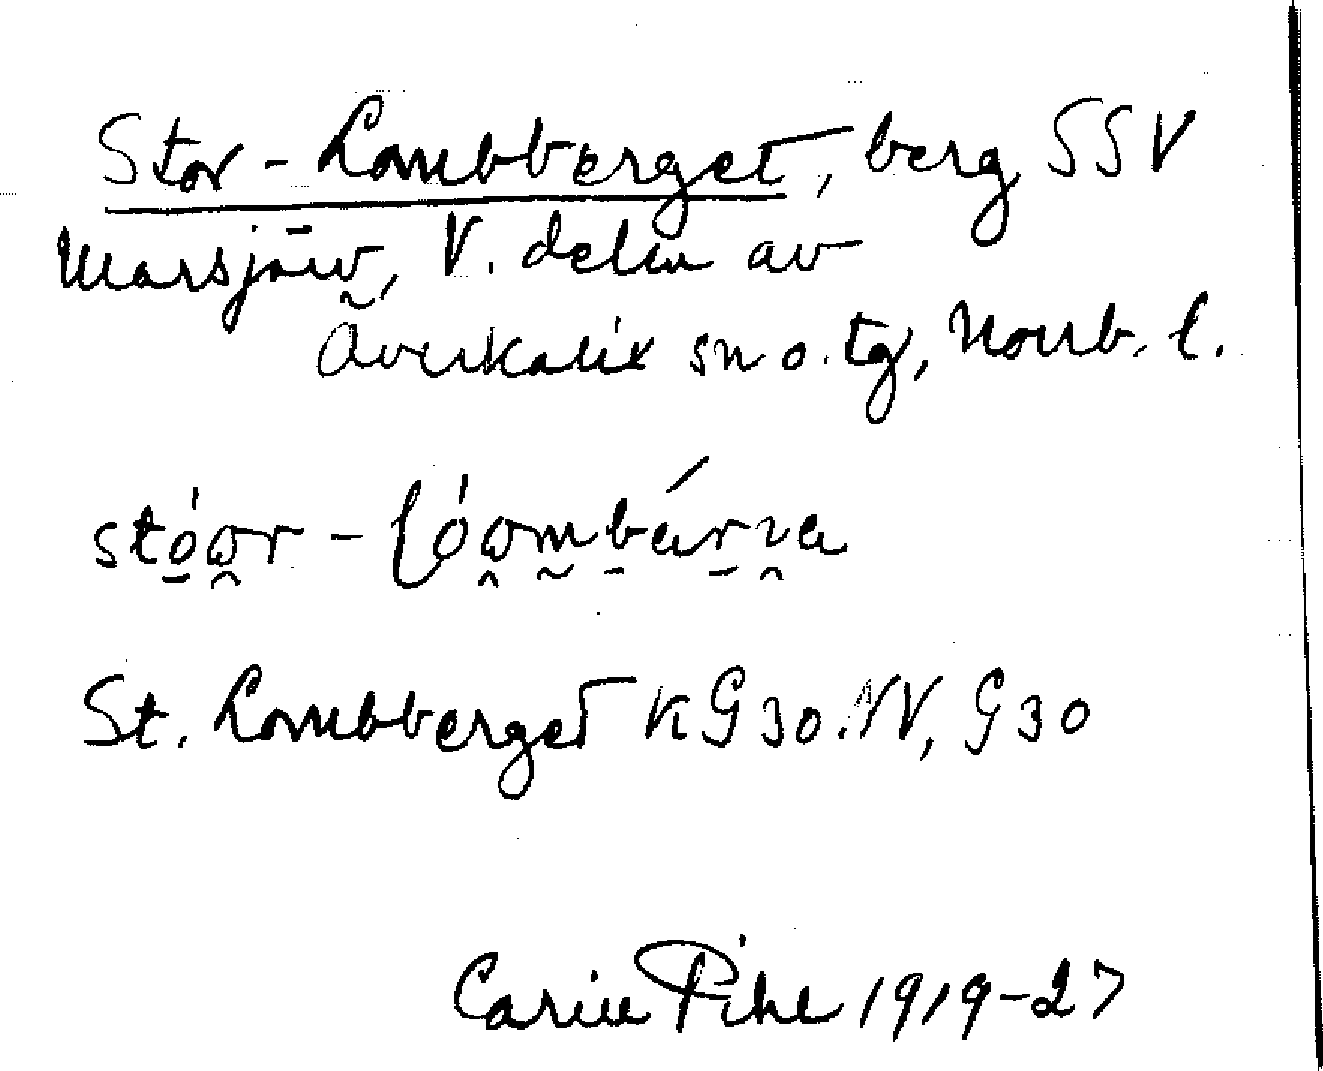 Stor-Lombberget, berg SSV
Marsjärv, V. delen av
Överkalix sn o. tg, Norrb. l.
stóor - lóombárva
St. Lombberget KG30.NV, G30
Carin Pihl 1919-27